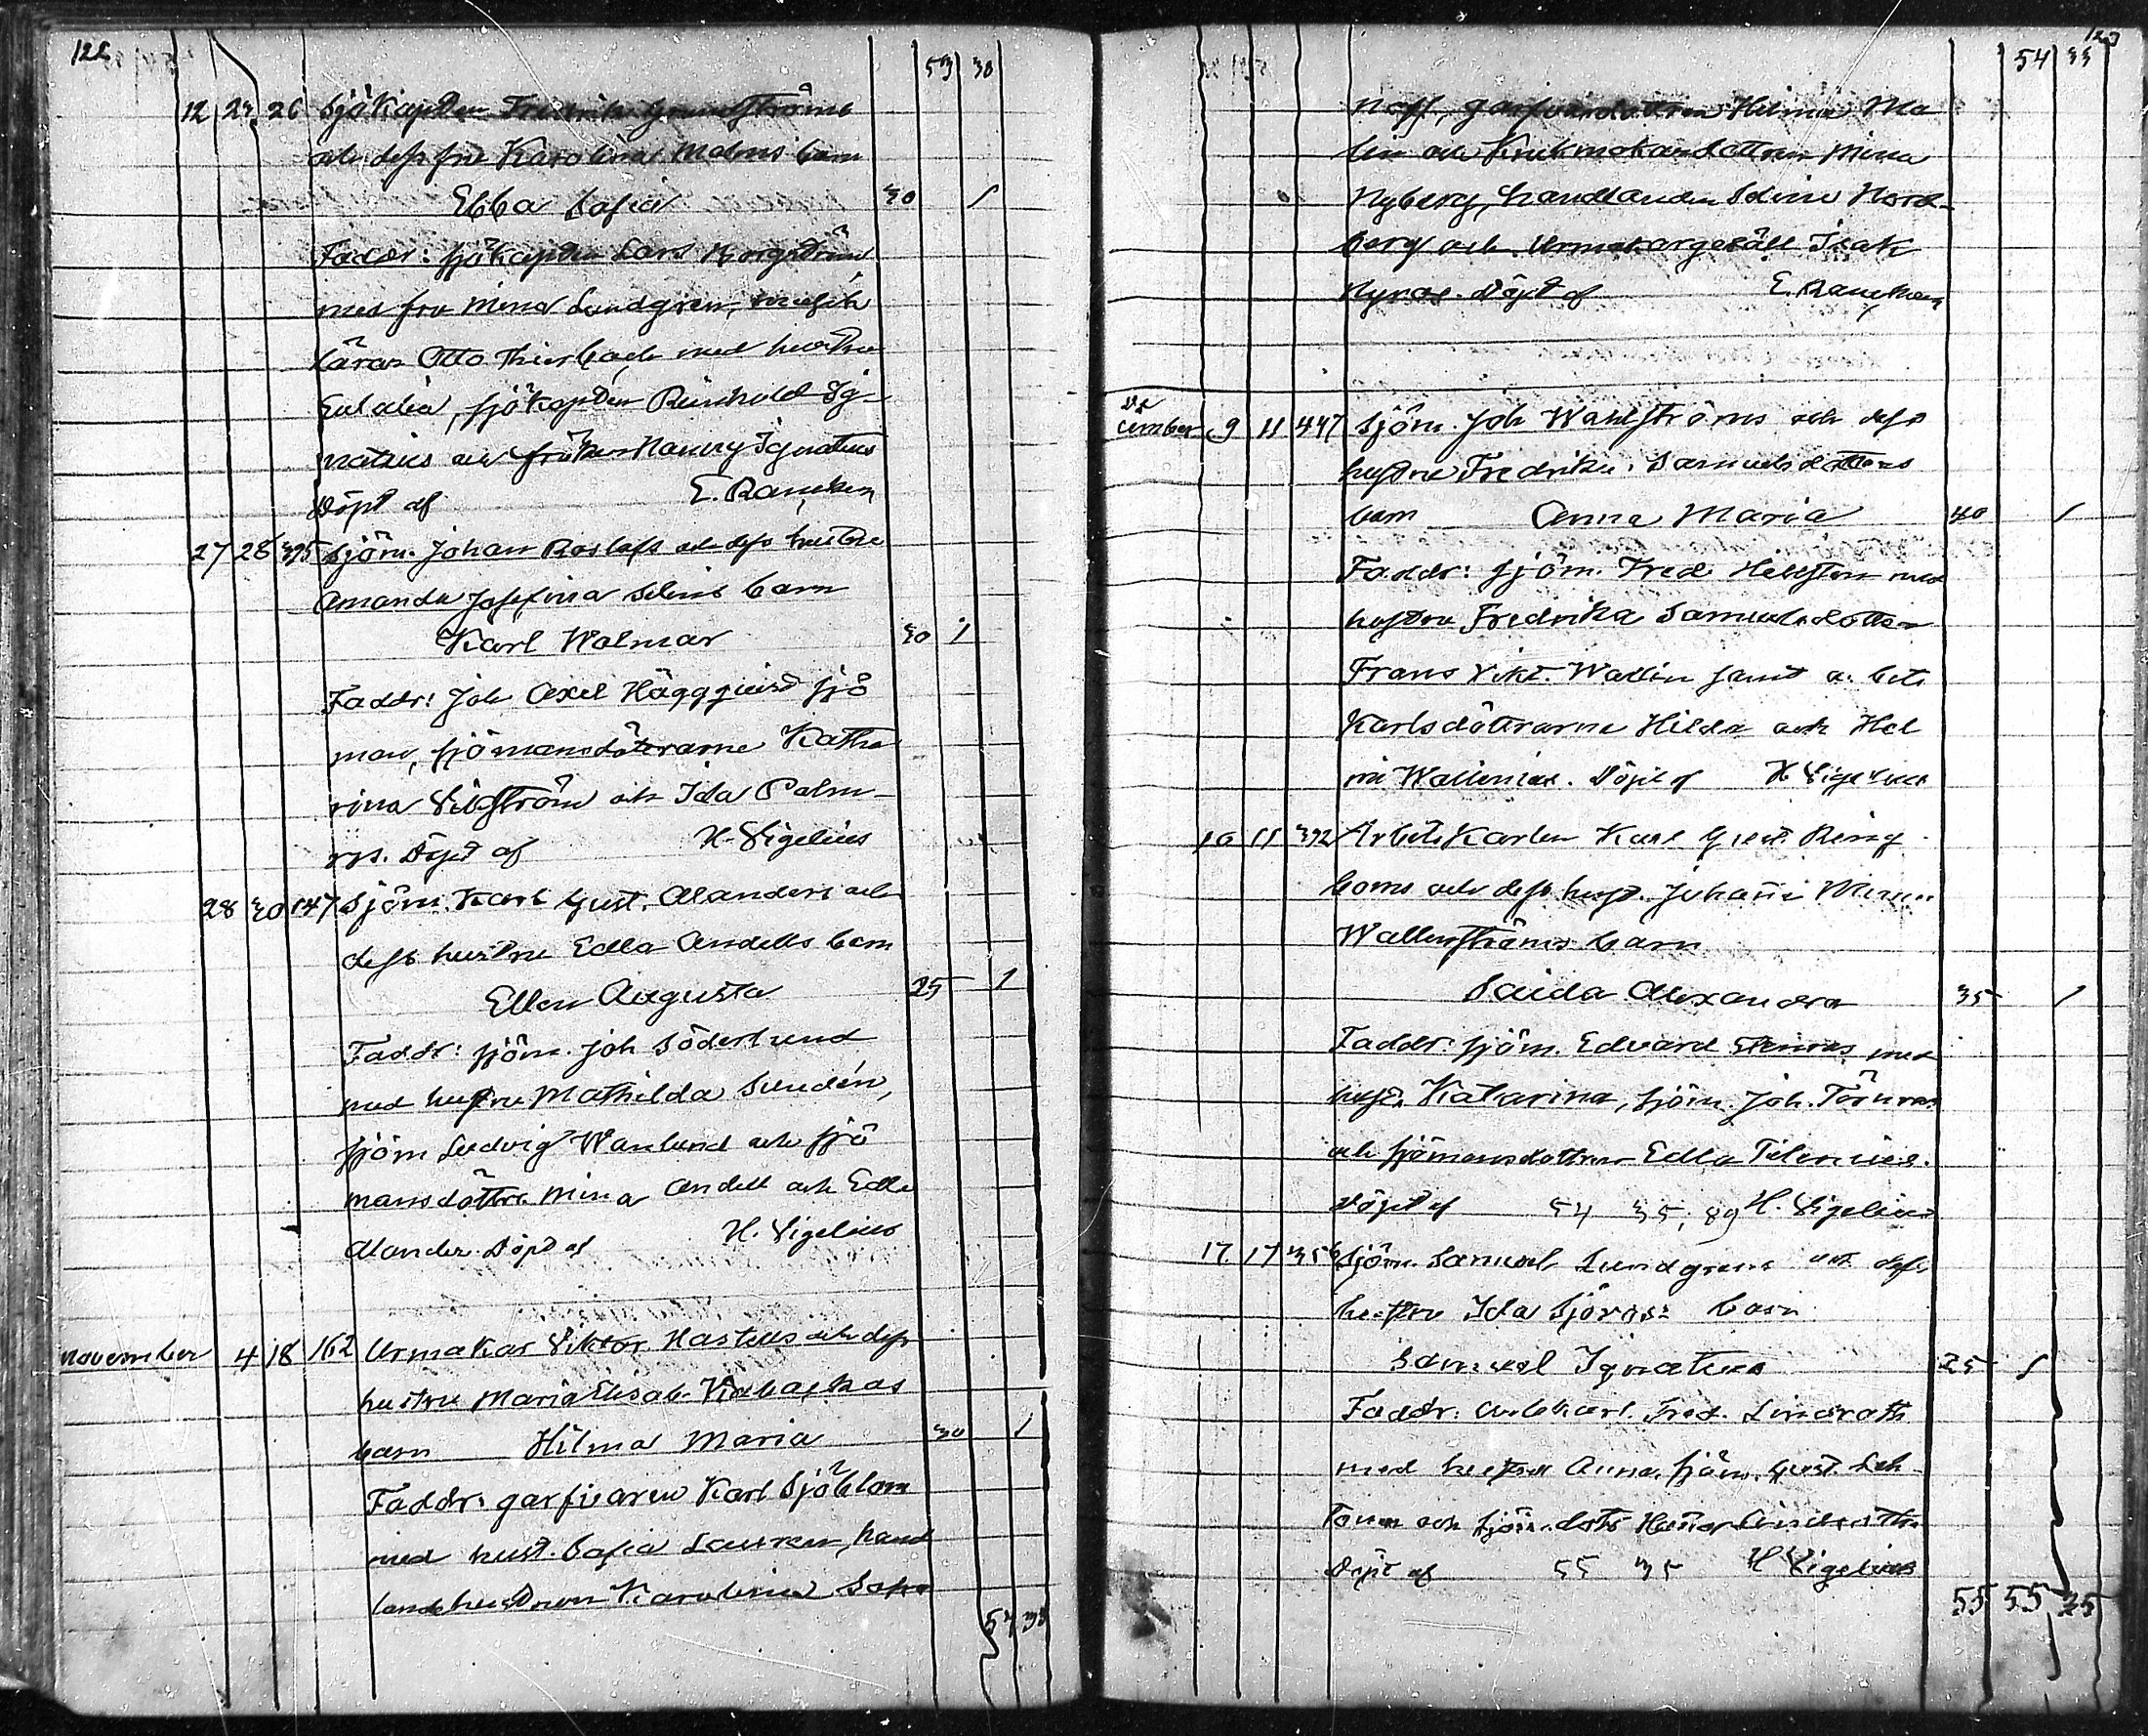 122
53 38
12 27 26 Sjökapten Fredrik Grundströms
och dess fru Karolina Malms barn
Ebba Sofia 30 1
Faddr: sjökapten Lars Borgström
med fru Mina Lundgren, musik
läraren Otto Thierbach med hustru
Eulalia, sjökapten Reinhold Ig-
natius och fröken Nanny Ignatius
Döpt af E. Rancken
27 28 395 Sjöm. Johan Roslöfs och dess hustru
Amanda Josefina Selins barn
Karl Walmar 30 1
Faddr: Joh Axel Häggqvist sjö
man, sjömansdöttrarne Katha
rina Sildström och Ida Palm-
ros. Döpt af H. Sigelius
28 30 147 Sjöm. Karl Gust. Alanders och
dess hustru Edla Andells barn
Ellen Augusta 25 1
Faddr: sjöm. Joh Söderlund
med hustru Mathilda Sundén,
sjöm Ludvig Wanlund och sjö
mansdöttr. Mina Andell och Edla
Alander. Döpt af H. Sigelius
November 4 18 162 Urmakar Viktor Hastells och dess
hustru Maria Elisab.
barn Hilma Maria 30 1
Faddr: garfvaren Karl Sjöblom
med hust. Sofia Lauren, hand
landehustrun Karolina
54 38
123
54 35
noff, garfvaredottren Hilma Ma
lin och Krukmakaredottren Mina
Nyberg, handlanden Selim Nord-
berg och Urmakargesäll Isak
Nyroos. Döpt af E. Rancken
De
cember 9 11 447 Sjöm. Joh Wahlströms och dess
hustru Fredrika Samuelsdotters
barn Anna Maria 40 1
Faddr: sjöm. Fred. Hellsten med
hustru Fredrika Samuelsdotter
Frans Vikt. Wallin samt arbets
Karlsdöttrarne Hilda och Hel
mi Wallenius. Döpt af H Sigelius
10 11 392 Arbetskarlen Karl Gust. Ring
boms och dess hust. Johanna Mina
Wallenströms barn
Saida Alexandra 35 1
Faddr: sjöm. Edvard med
hust. Katarina, sjöm. Joh. Törnroos
och sjömansdottren Edla
Döpt af 54 35, 89 H. Sigelius
17 17 356 Sjöm. Samuel Lundgrens och dess
hustru Ida Sjöroos: barn
Samuel Ignatius 25 1
Faddr: Arb.karl. Fred. Lindroth
med hustru Anna, sjöm. Gust. Leh
tonen och sjöm.dotr Hanna Lindroth
Döpt af 55 35 H Sigelius
55 55 35